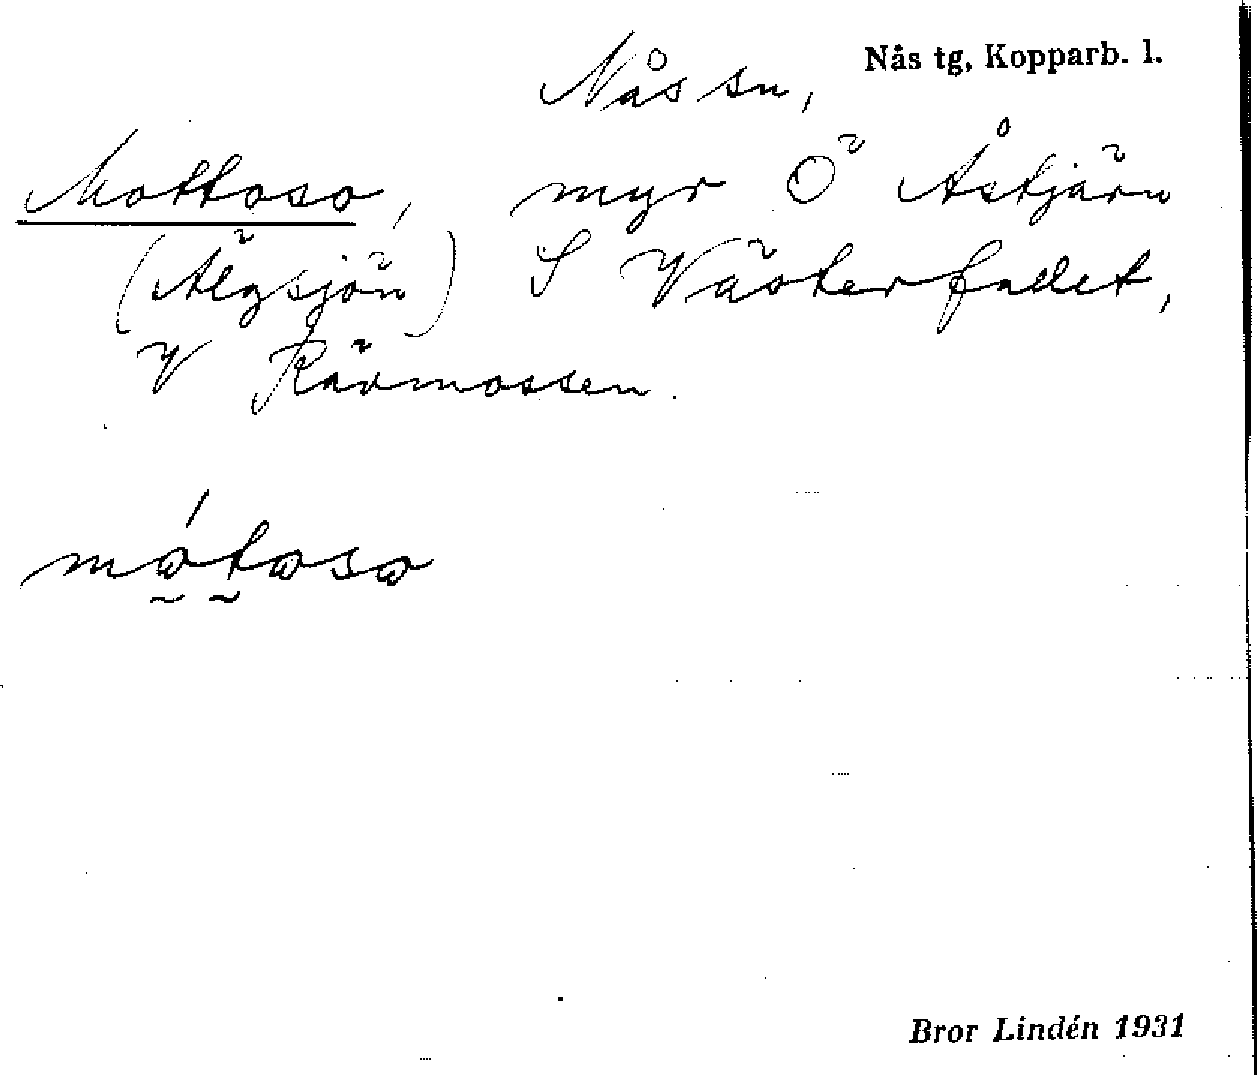 Nås tg, Kopparb. l.
Nås sn,
Mottoso, myr Ö Åstjärn
(Älgsjön) S Västerfallet,
V Rävmossen.
mótoso
Bror Lindén 1931